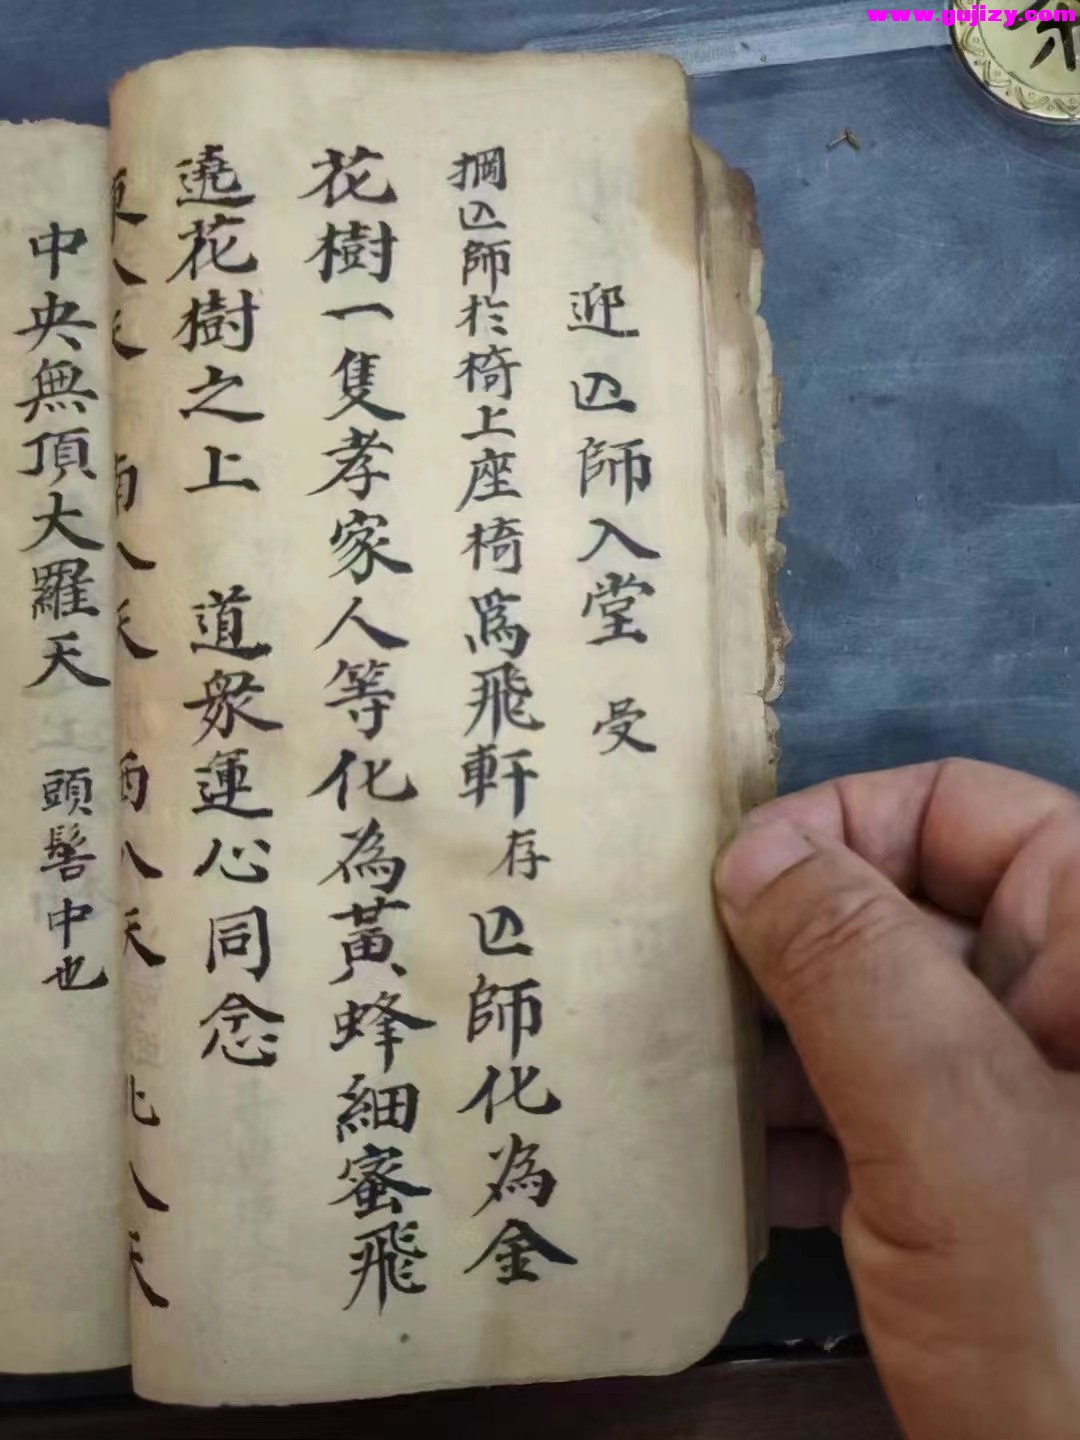 www.gujizy.com
迎亾師入堂
掆亾師於椅上座椅爲飛軒 存 亾師化為金
花樹一隻孝家人等化為黃蜂細蜜飛
遶花樹之上 道眾運心同念
東八天 南八天 西八天 北八天
中央無頂大羅天 頭髻中也